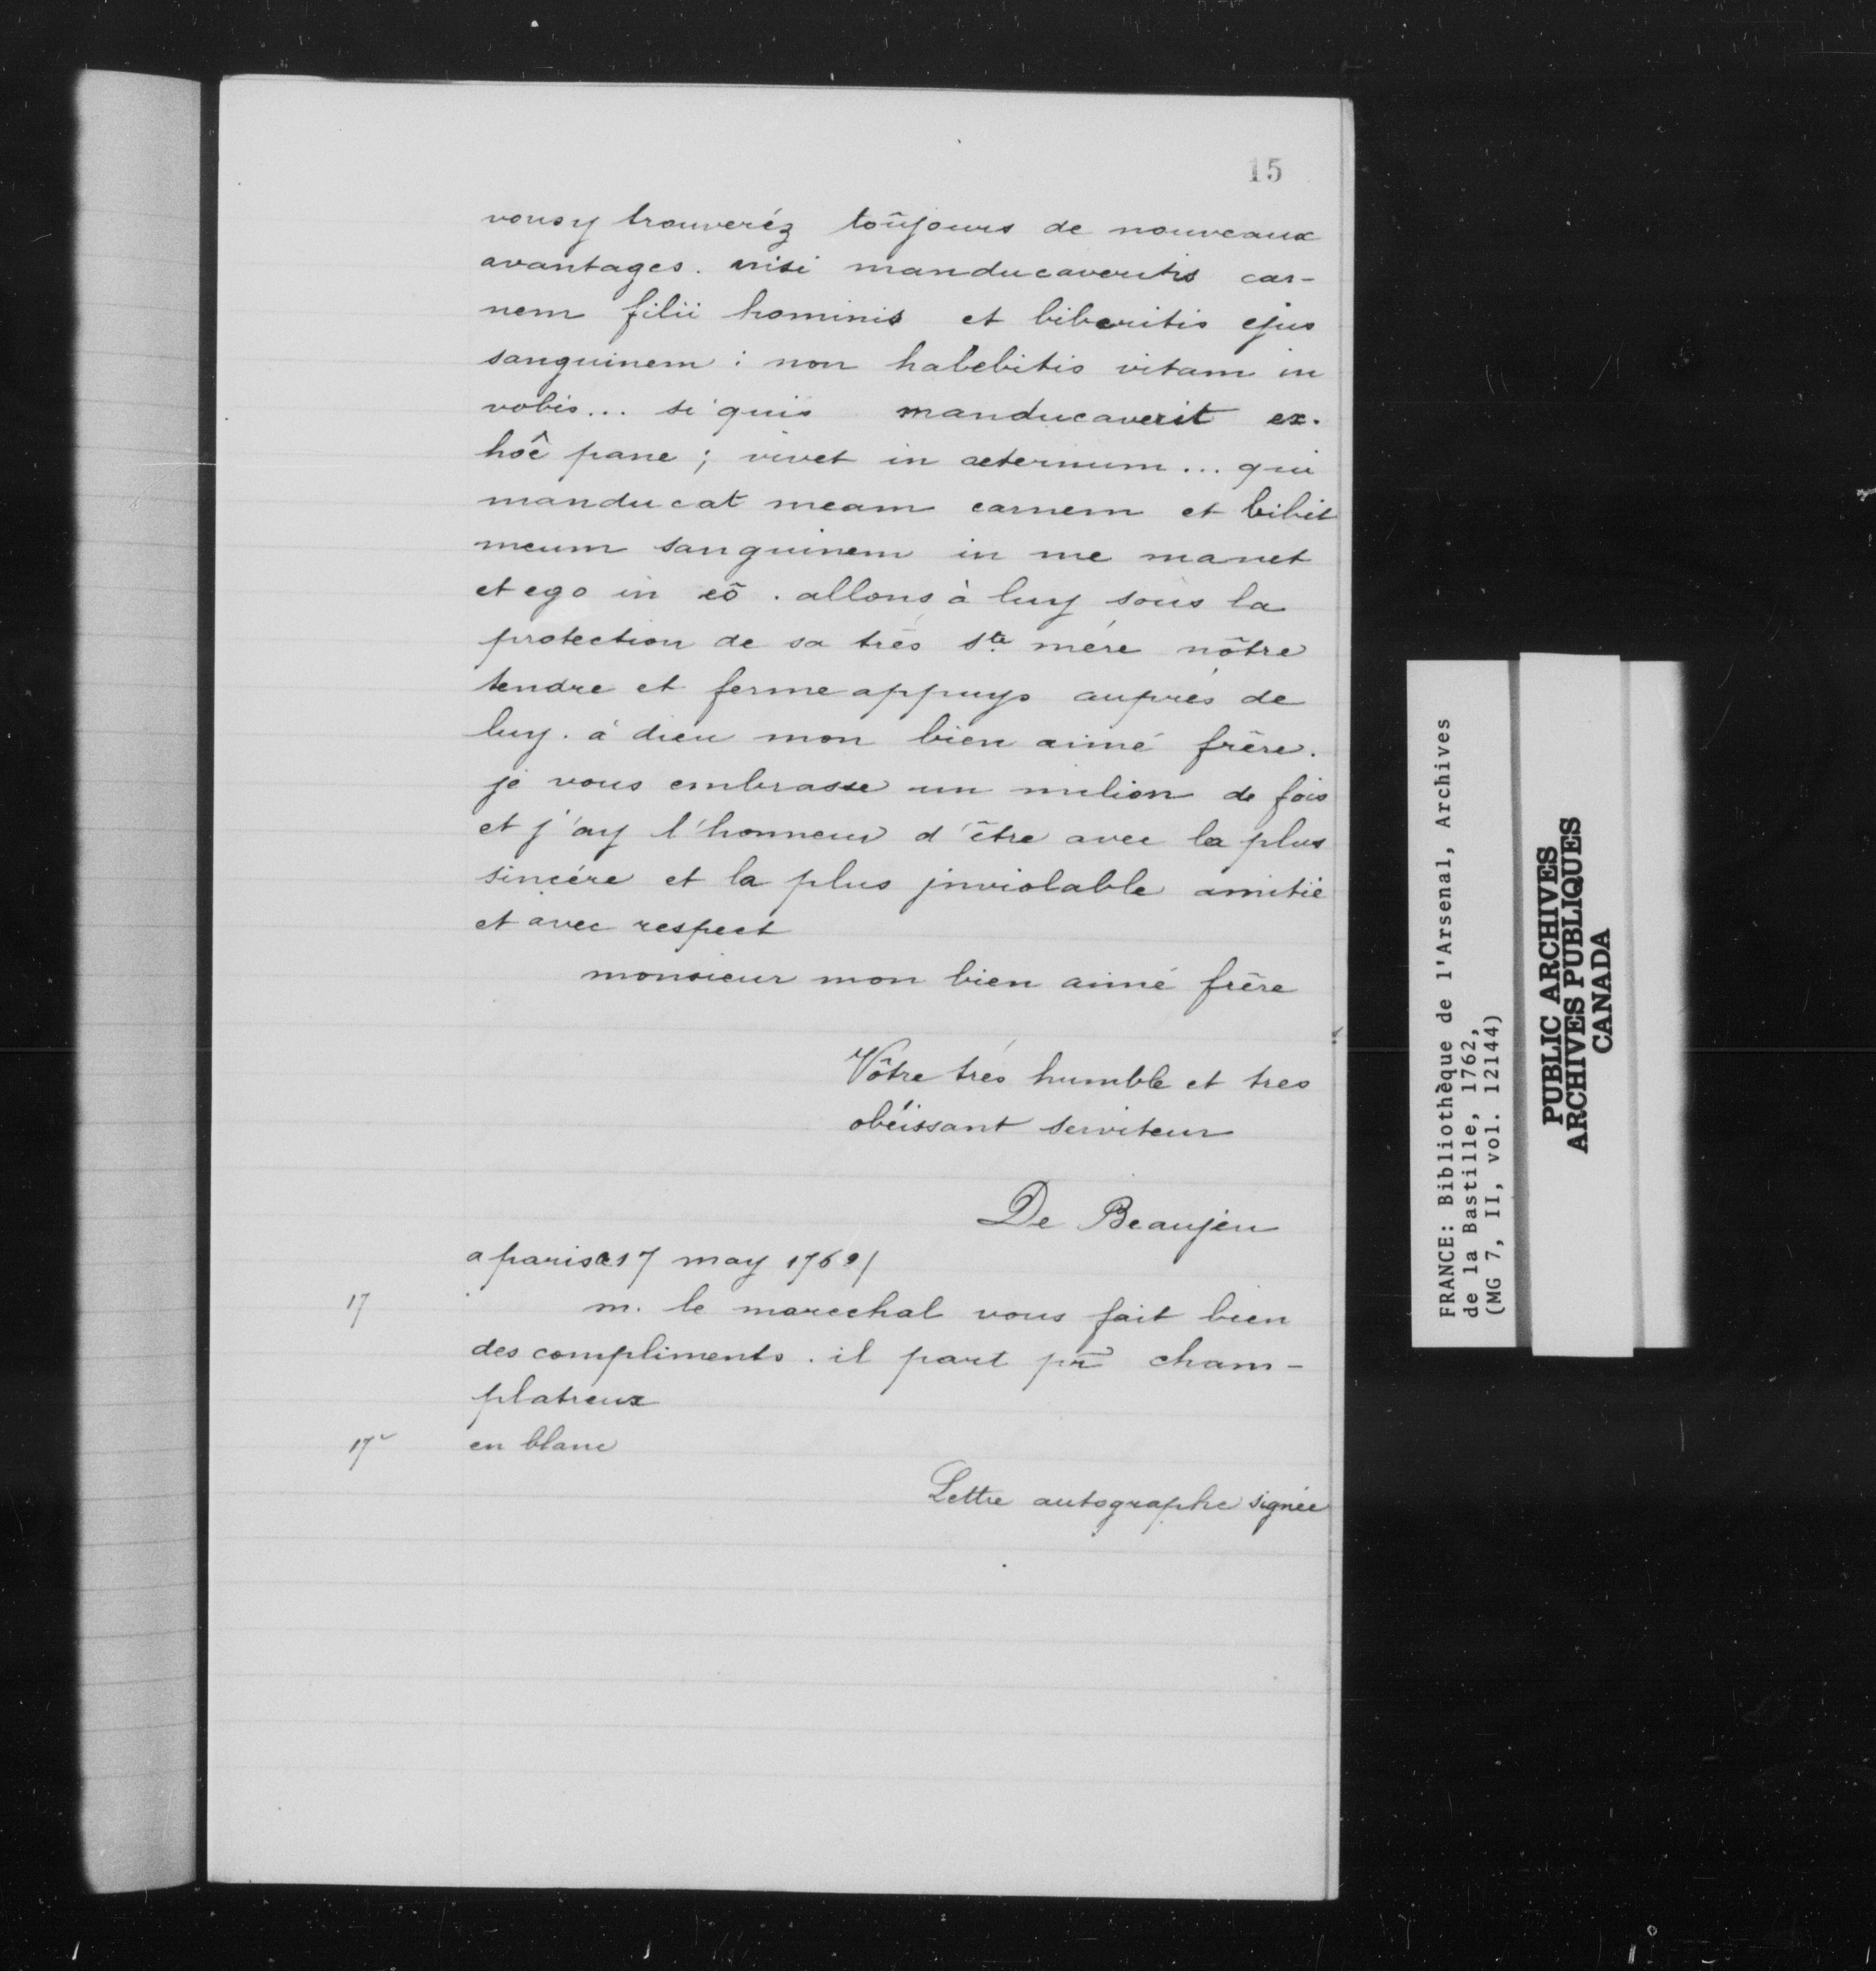 15
vous y trouveréz toûjours de nouveaux
avantages. nisi manducaveritis car-
nem filii hominis et biberitis ejus
sanguinem : non habebitis vitam in
vobis... si quis manducaverit ex.
hôc pane ; vivet in aeternum... qui
manducat meam carnem et bibit
meum sanguinem in me manet
et ego in eô. allons à luy sous la
protection de sa trés ste mére nôtre
tendre et ferme appuys auprés de
luy. à dieu mon bien aimé frêre.
je vous embrasse un milion de fois
et j'ay l'honneur d'être avec la plus
sincére et la plus jnviolable amitié
et avec respect
monsieur mon bien aimé frêre
Vôtre trés humble et tres
obéissant serviteur
De Beaujeu
a paris 17 may
17 m. le marechal vous fait bien
des compliments. il part pr cham-
platreux
17v en blanc
Lettre autographe signée
FRANCE: Bibliothèque de l'Arsenal, Archives
de la Bastille, 1762,
(MG 7, II, vol. 12144)
PUBLIC ARCHIVES
ARCHIVES PUBLIQUES
CANADA